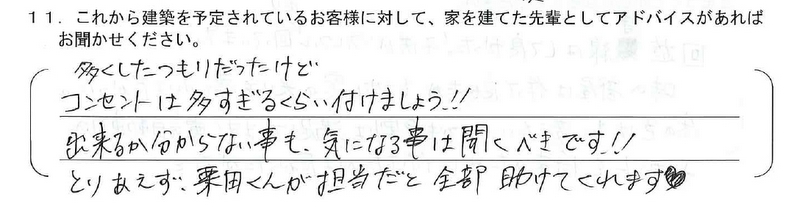 11．これから建築を予定されているお客様に対して、家を建てた先輩としてアドバイスがあれば
お聞かせください。
多くしたつもりだったけど
コンセントは多すぎるくらい付けましょう!!
出来るか分からない事も、気になる事は聞くべきです!!
とりあえず、栗田くんが担当だと全部助けてくれます